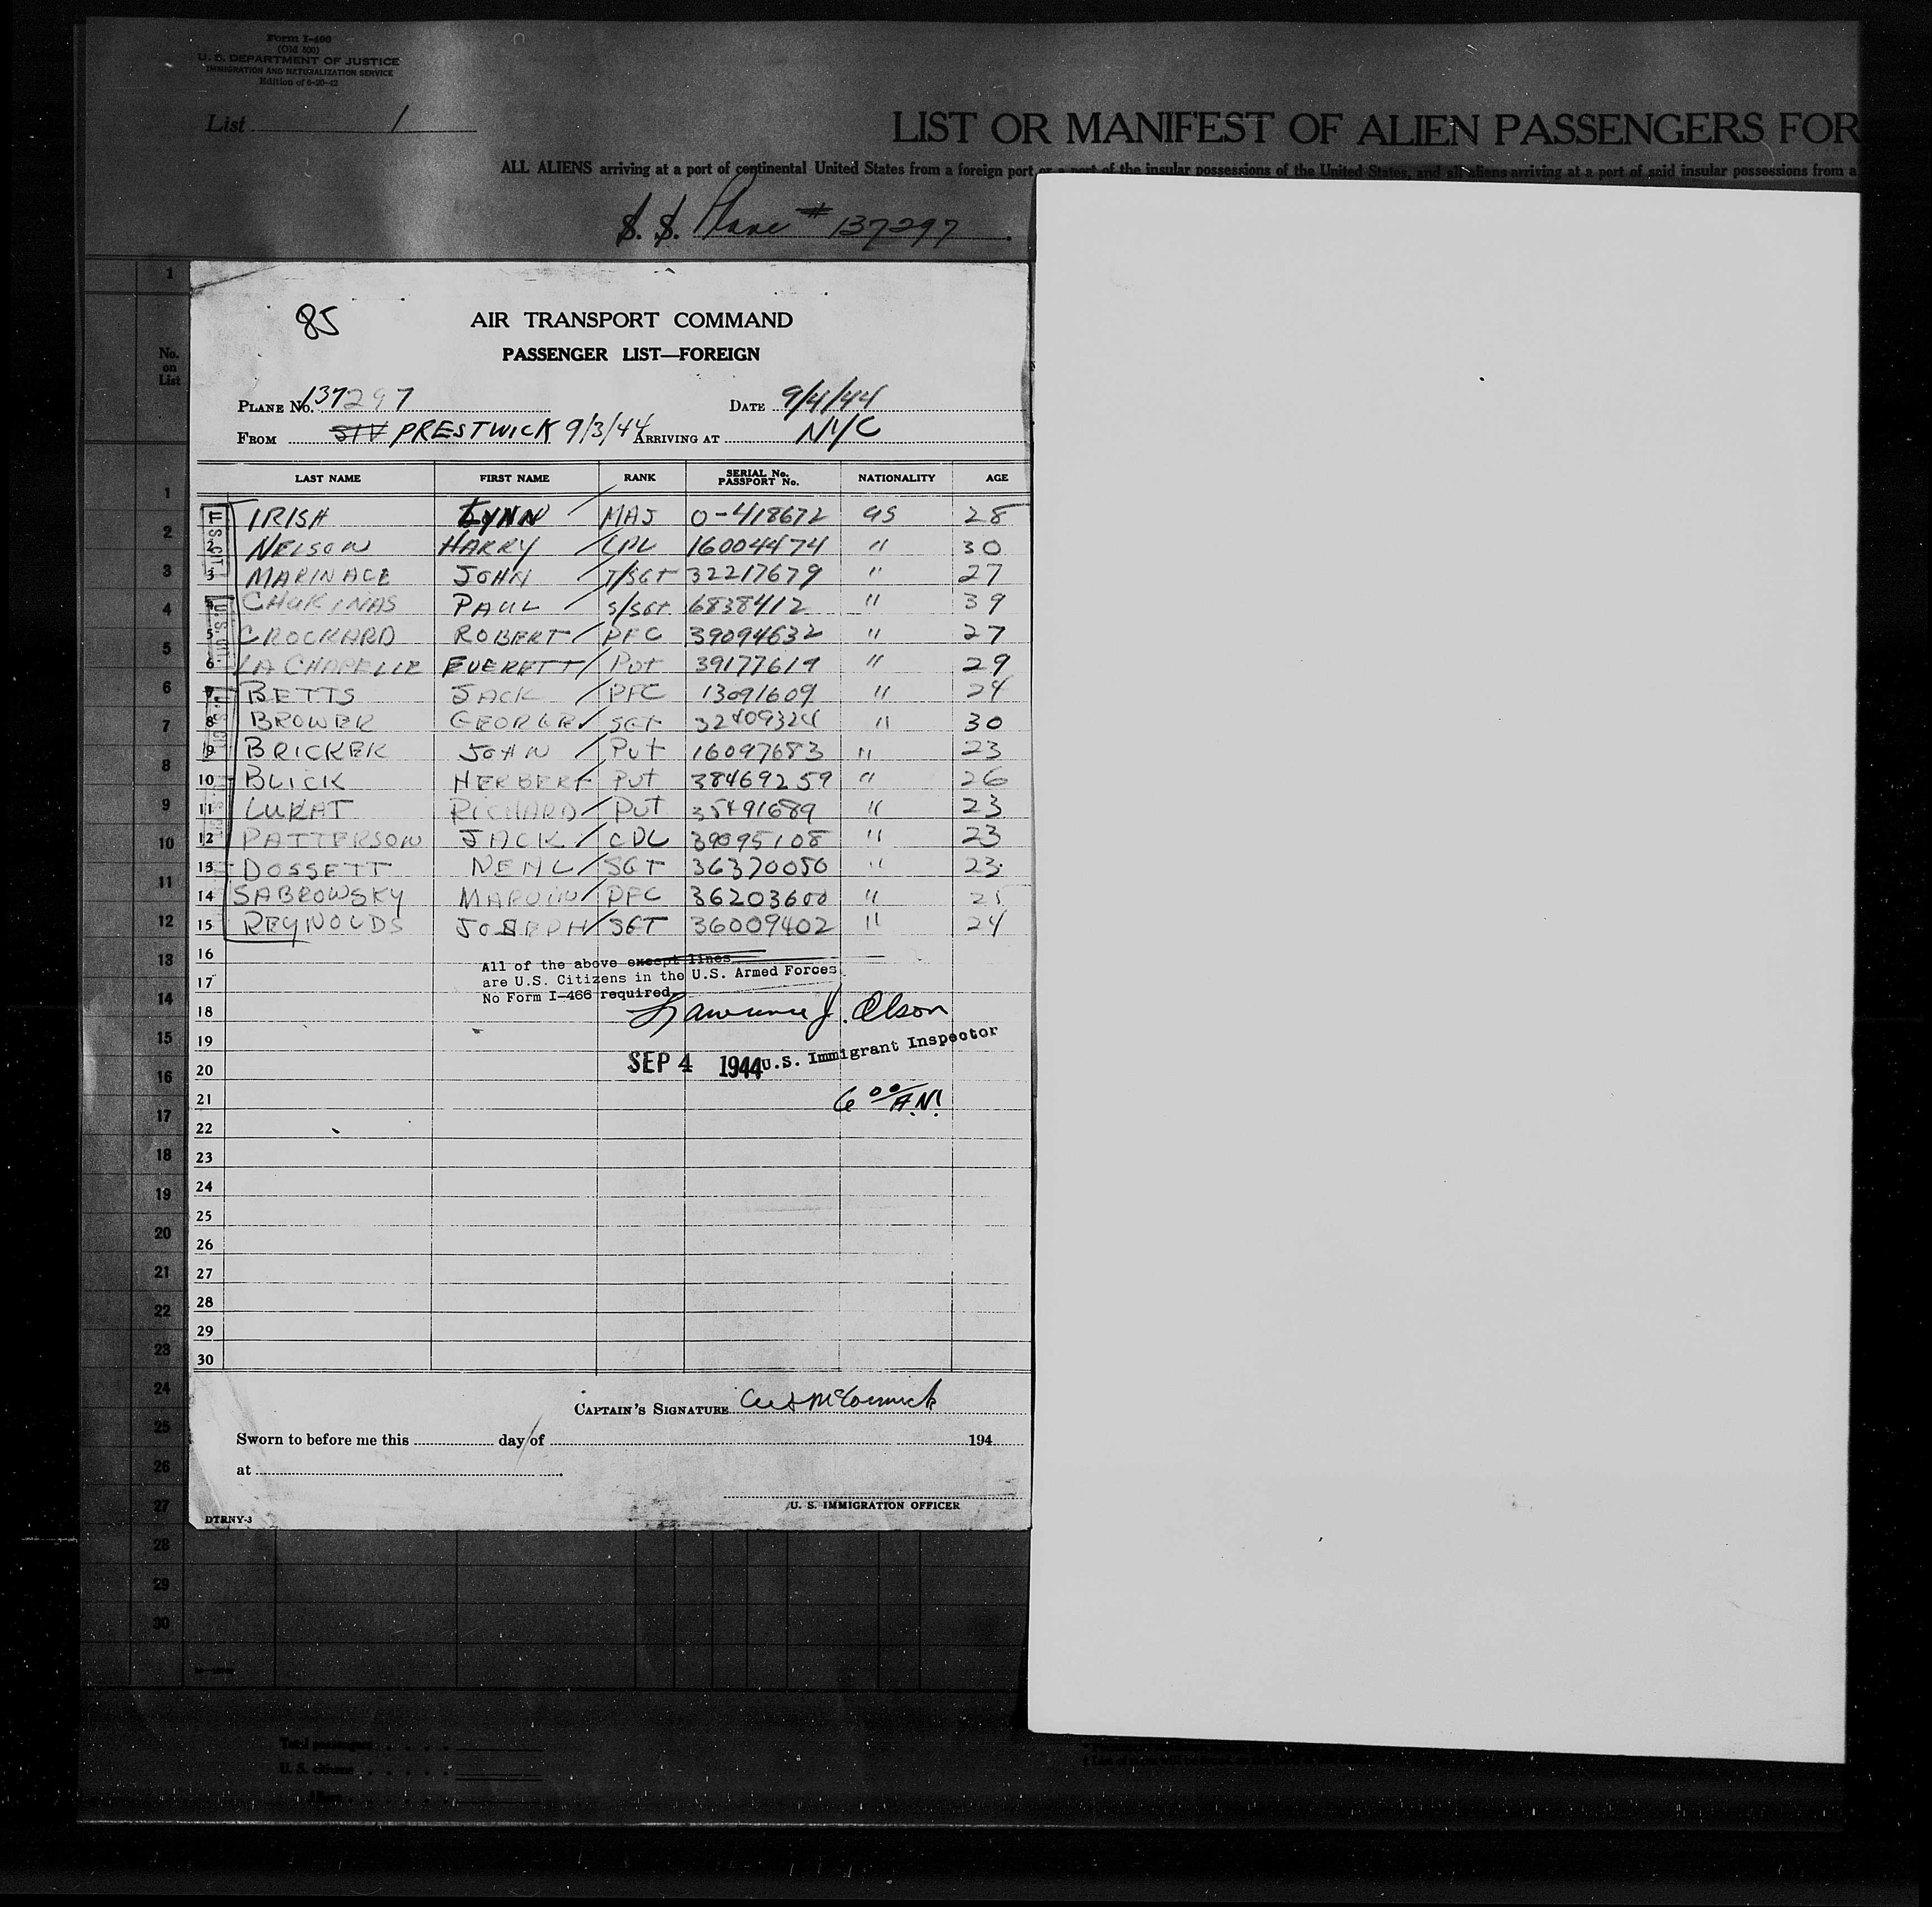 Form I-400
(Old 500)
U. S. DEPARTMENT OF JUSTICE
IMMIGRATION AND NATURALIZATION SERVICE
Edition of 6-20-42
List 1
LIST OR MANIFEST OF ALIEN PASSENGERS FOR
ALL ALIENS arriving at a port of continental United States from a foreign port or a port of the insular possessions of the United States, and all aliens arriving at a port of said insular possessions from a
S. S. Plane # 137297
No. on List
85
AIR TRANSPORT COMMAND
PASSENGER LIST—FOREIGN
PLANE No. 137297 DATE 9/4/44
FROM PRESTWICK 9/3/44 ARRIVING AT NYC
LAST NAME FIRST NAME RANK SERIAL No. PASSPORT No. NATIONALITY AGE
1 IRISH LYNN MAJ 0-418672 US 28
2 NELSON HARRY CPL 16004474 " 30
3 MARINACE JOHN T/SGT 32217679 " 27
4 CHUKINAS PAUL S/SGT 6838412 " 39
5 CROCKARD ROBERT PFC 39094632 " 27
6 LA CHAPELLE EVERETT Pvt 39177619 " 29
7 BETTS JACK PFC 13091609 " 24
8 BROWER GEORGE SGT 32409324 " 30
9 BRICKER JOHN Pvt 16097683 " 23
10 BLICK HERBERT Pvt 38469259 " 26
11 LUKAT RICHARD Pvt 35491689 " 23
12 PATTERSON JACK CPL 39095108 " 23
13 DOSSETT NEAL SGT 36370050 " 23
14 SABROWSKY MARVIN PFC 36203600 " 25
15 REYNOLDS JOSEPH SGT 36009402 " 24
16
17
18
19
20
21
22
23
24
25
26
27
28
29
30
All of the above except lines
are U.S. Citizens in the U.S. Armed Forces
No Form I-466 required.
Lawrence J. Olson
U.S. Immigrant Inspector
SEP 4 1944
6 00 A.M.
CAPTAIN'S SIGNATURE McCormick
Sworn to before me this day of 194
at
U. S. IMMIGRATION OFFICER
DTRNY-3
Total passengers
U. S. citizens